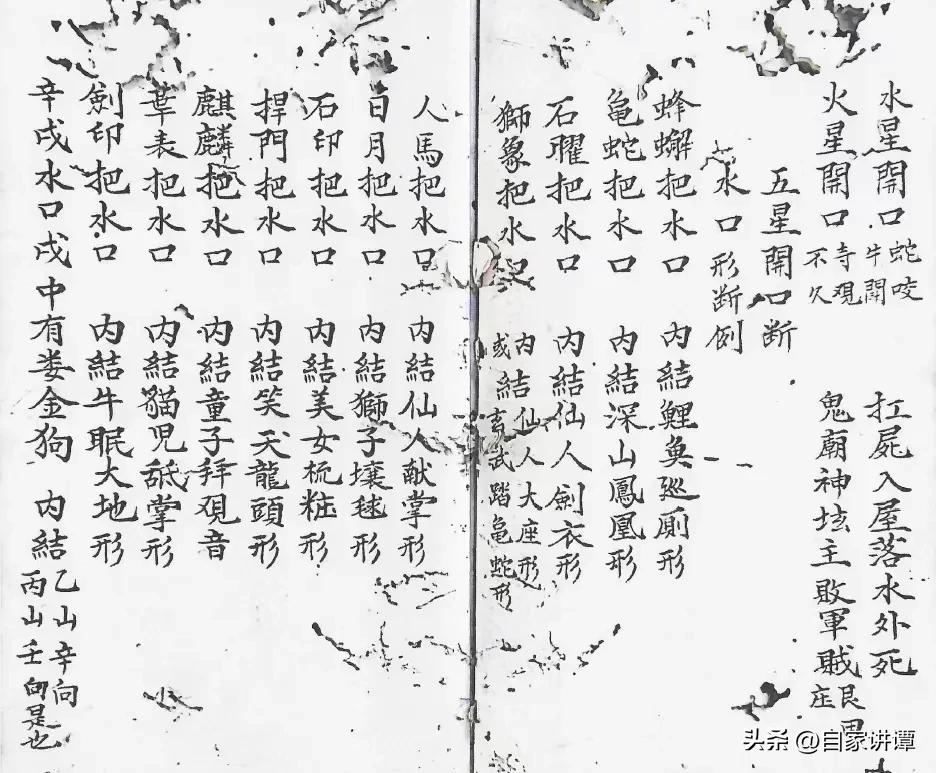 水星開口 蛇咬牛鬪 扛屍入屋落水外死
火星開口 寺觀不久 鬼廟神坛主敗軍賊 艮田庄
五星開口断
水口形断例
蜂蠏把水口 内結鯉魚巡厠形
龜蛇把水口 内結深山鳳凰形
石曜把水口 内結仙人劍衣形
獅象把水口 内結仙人大座形 或玄武踏龜蛇形
人馬把水口 内結仙人献掌形
日月把水口 内結獅子壤毬形
石印把水口 内結美女梳粧形
捍門把水口 内結笑天龍頭形
麒麟把水口 内結童子拜观音
華表把水口 内結貓児舐掌形
劍印把水口 内結牛眠大地形
辛戌水口戌中有娄金狗 内結乙山辛向丙山壬向是也
头条 @自家讲谭